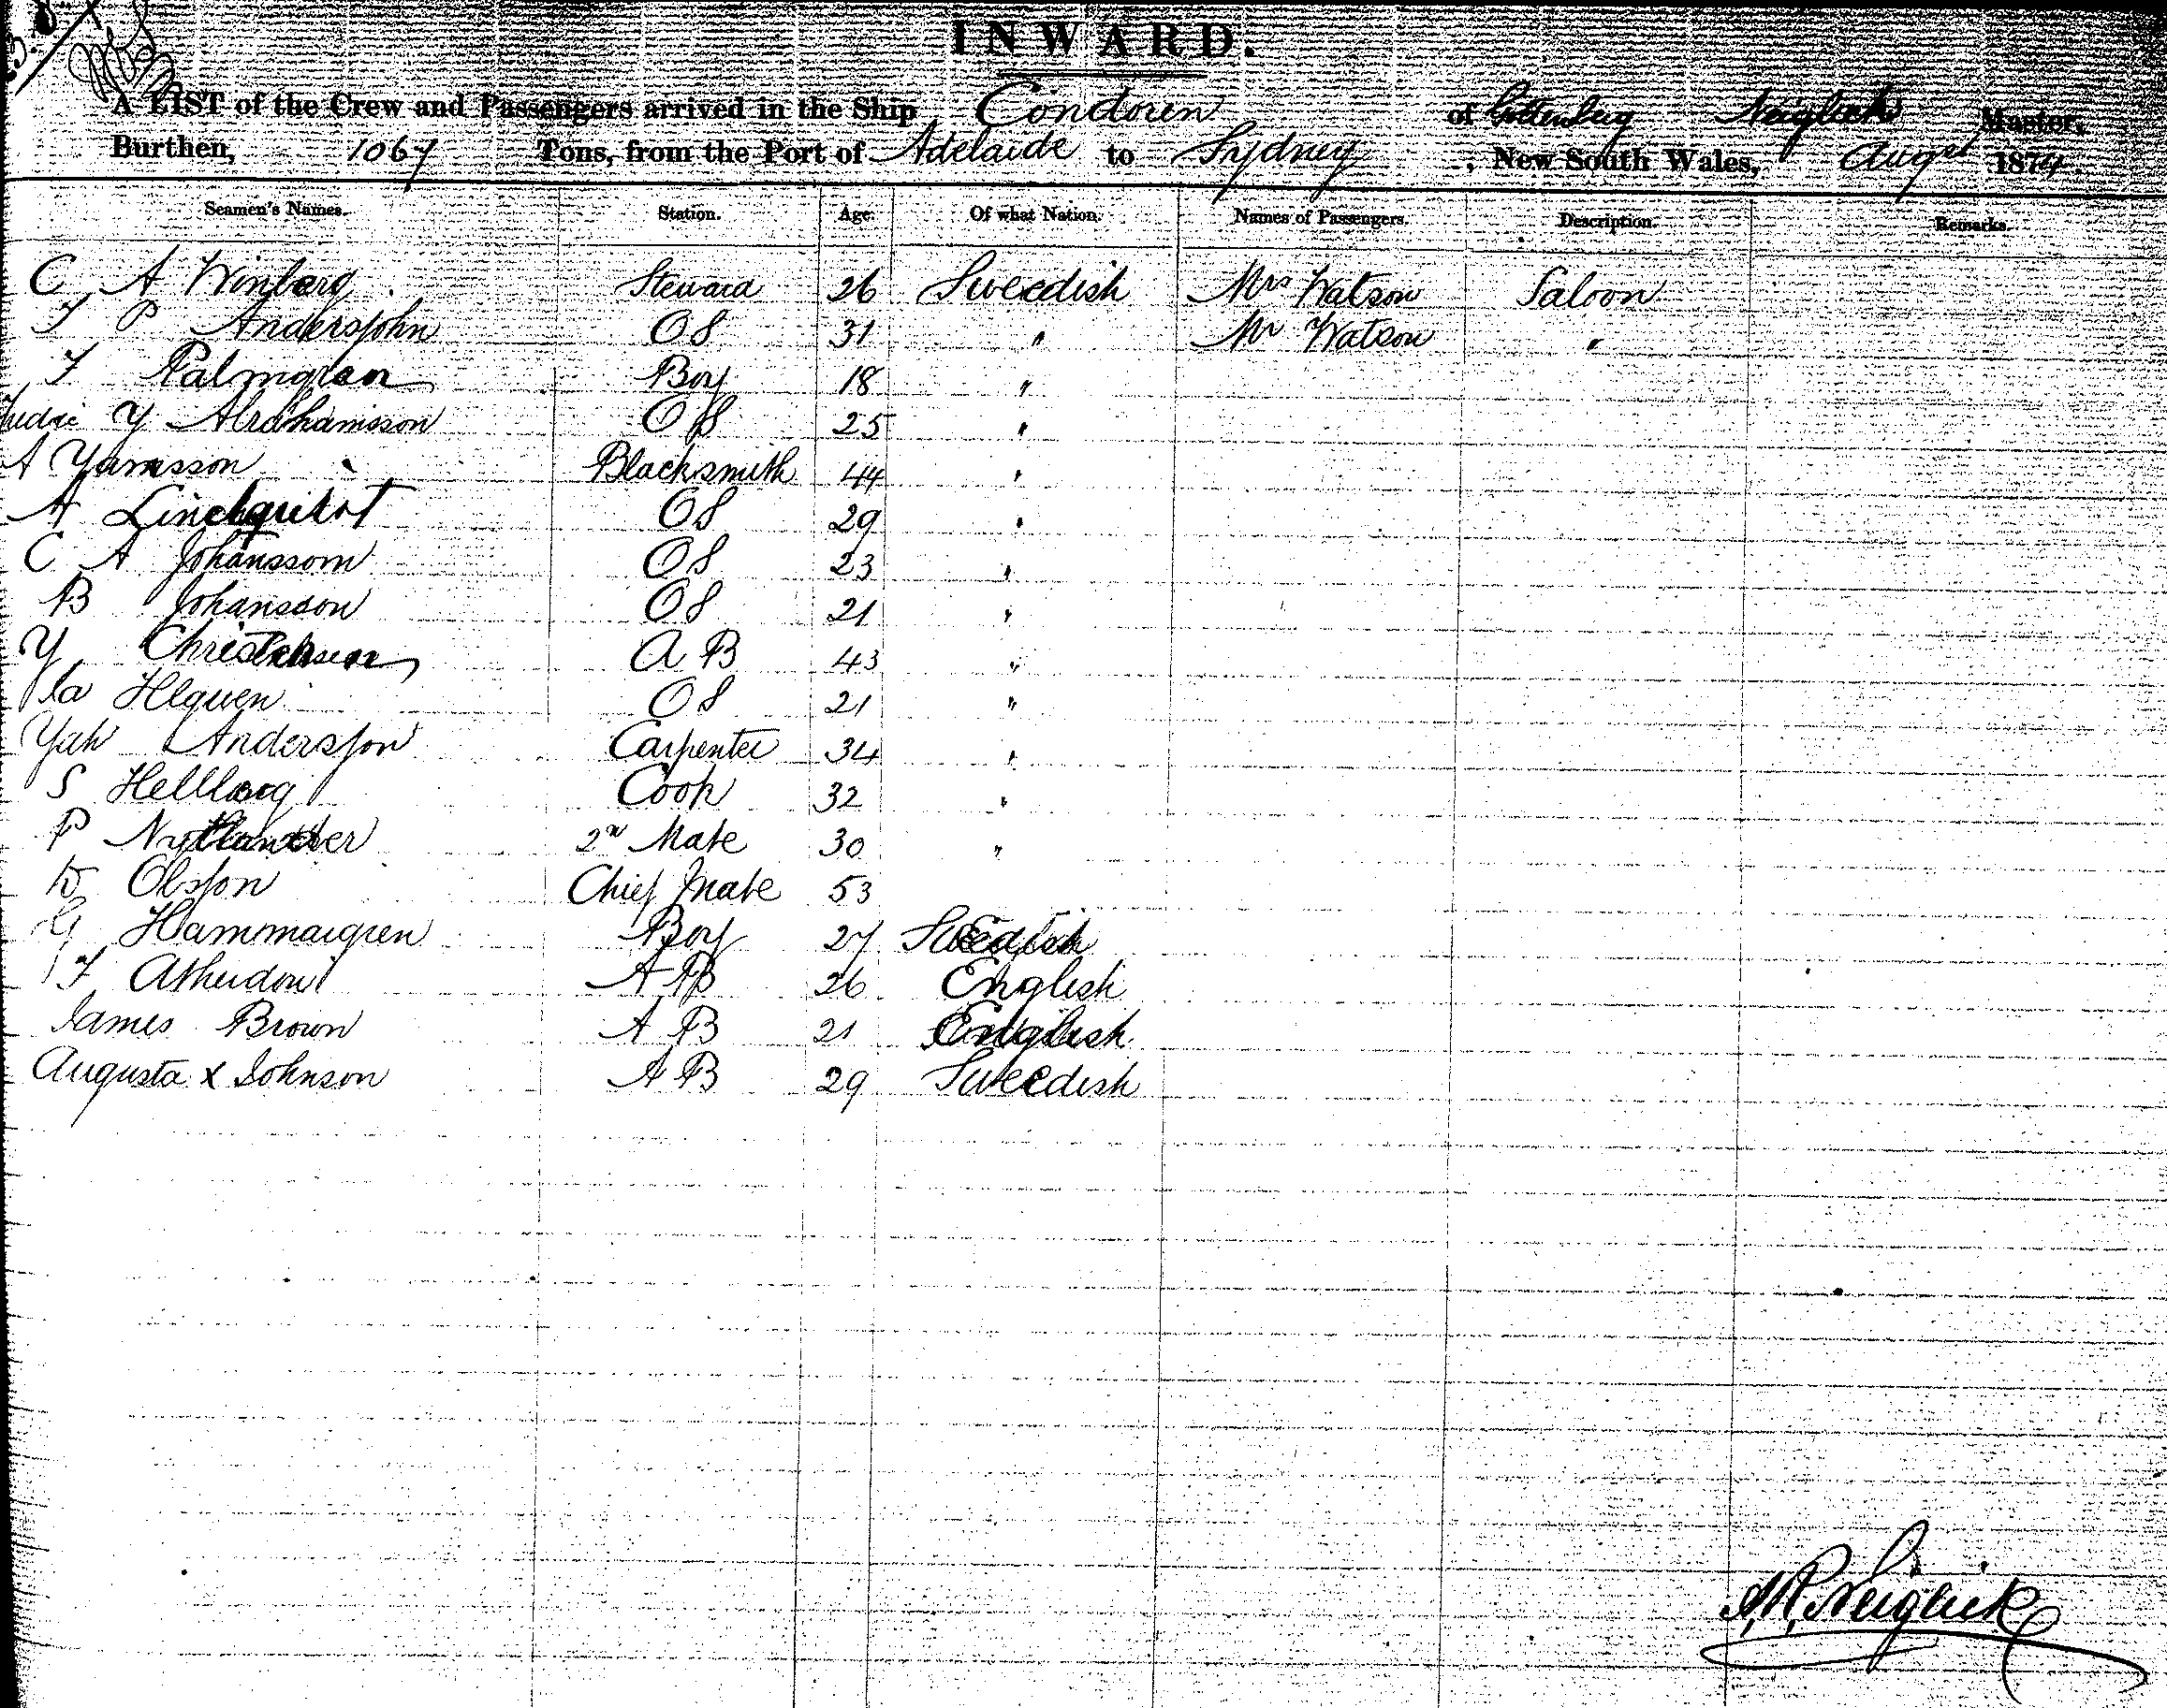 INWARD.
A LIST of the Crew and Passengers arrived in the Ship Condoren of Gottenburg Neiglick Master,
Burthen, 1067 Tons, from the Port of Adelaide to Sydney, New South Wales, Augst 1874
Seamen's Names. Station. Age. Of what Nation. Names of Passengers. Description. Remarks.
C A Winberg Steward 26 Sweedish Mrs Watson Saloon
F P Andersjohn OS 31 " Mr Watson "
F Palmgren Boy 18 "
Y Abrahamsson OS 25 "
A Yamsson Blacksmith 44 "
A Lindquist OS 29 "
C A Johanssom OS 23 "
B Johansson OS 21 "
Y Christensen A B 43 "
OS 21 "
Yah Andersson Carpenter 34 "
S Hellberg Cook 32 "
P Nytlander 2n Mate 30 "
Olsson Chief Mate 53
G Hammargren Boy 27 Swedish
F A B 26 English
James Brown A B 21 English
Augusta x Johnson A B 29 Sweedish
Neiglick